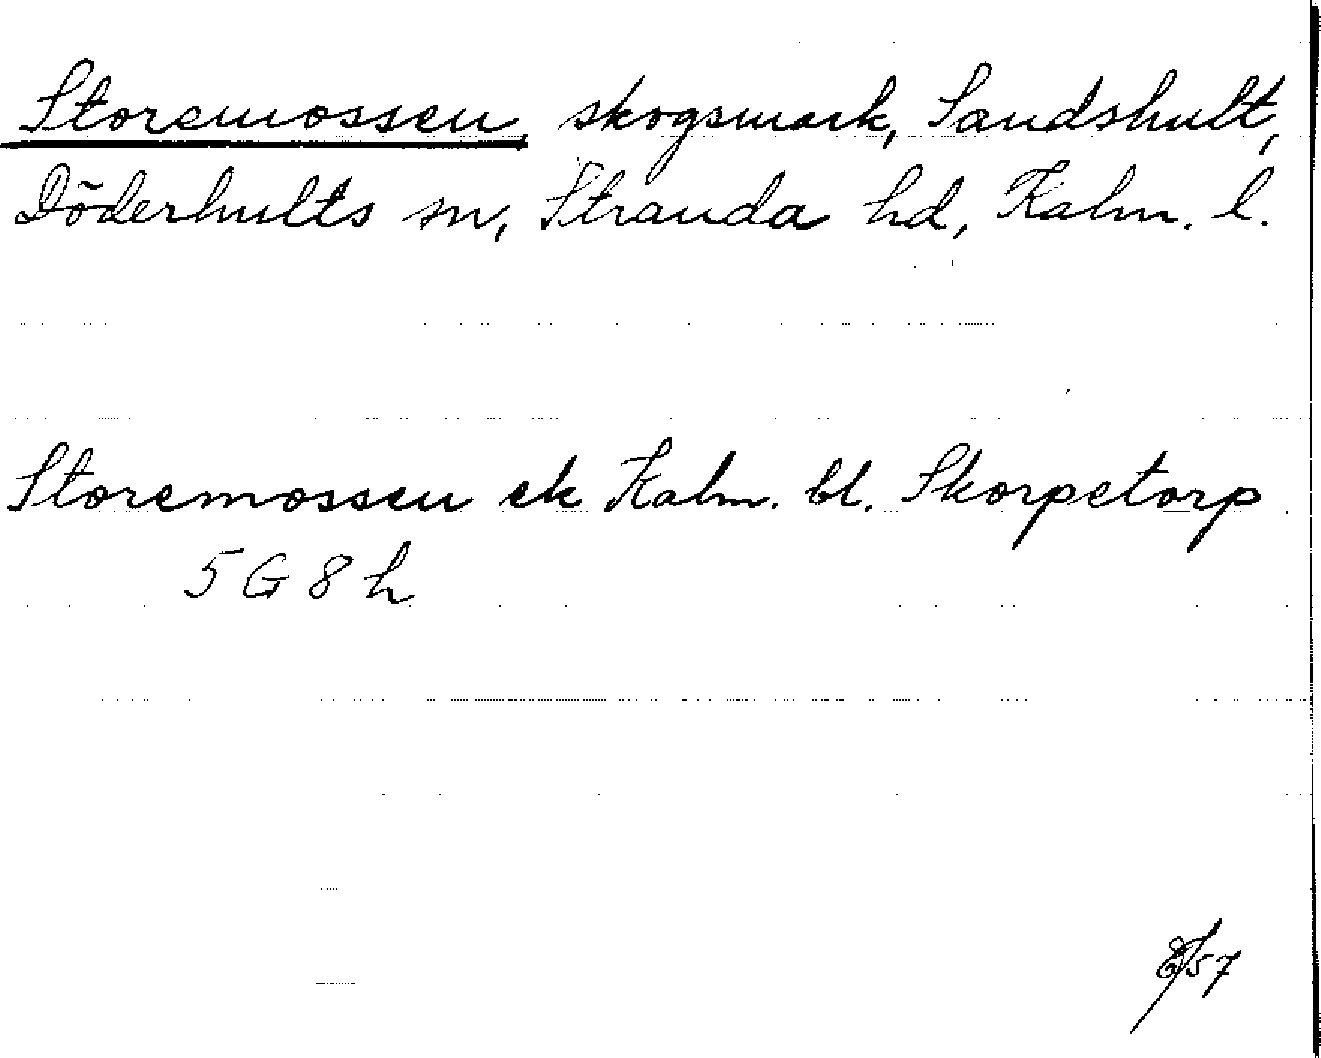 Storemossen, skogsmark, Sandshult,
Döderhults sn, Stranda hd, Kalm. l.
Storemossen ek Kalm. bl. Skorpetorp
5 G 8 h